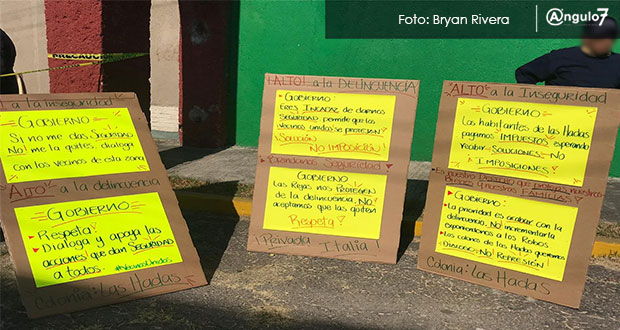 Foto: Bryan Rivera
Ángulo7
PRECAUCIÓN
a la Inseguridad
GOBIERNO
Si no me das SEGURIDAD
NO me la quites, dialoga
con los vecinos de esta zona
ALTO a la delincuencia
GOBIERNO
Respeta!
Dialoga y apoya las
acciones que dan SEGURIDAD
a todos. #VecinosUnidos
Colonia: Las Hadas
¡ALTO! a la DELINCUENCIA
GOBIERNO
ERES INCAPAZ de darnos
SEGURIDAD permite que los
vecinos unidos se protejan!
SOLUCIÓN
NO IMPOSICIÓN!
SEGURIDAD
GOBIERNO
Las Rejas nos PROTEGEN
de la delincuencia, NO
aceptamos que las quiten
Respeta!
Privada Italia
ALTO a la Inseguridad
GOBIERNO
Los habitantes de las Hadas
pagamos IMPUESTOS esperando
Recibir SOLUCIONES NO
IMPOSICIONES!
Es Nuestro DERECHO que protejas nuestros
y nuestras FAMILIAS
GOBIERNO:
La prioridad es acabar con la
delincuencia, NO incrementarla
exponiendonos a los Robos
Los colonos de las Hadas queremos
DIALOGO NO REPRESIÓN
Colonia: Las Hadas